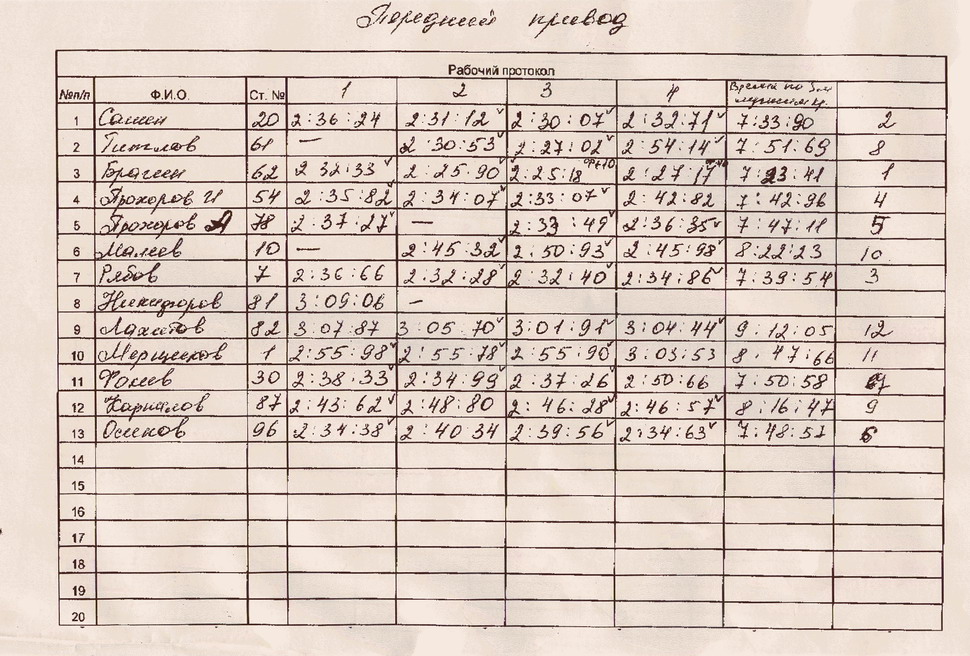 Передний привод
Рабочий протокол
№п/п Ф.И.О. Ст. № 1 2 3 4 Время по 3-м лучшим
1 20 2:36:24 2:31:12✓ 2:30:07✓ 2:32:71✓ 7:33:90 2
2 Титлов 61 — 2:30:53✓ 2:27:02✓ 2:54:14✓ 7:51:69 8
3 Брагин 62 2 32:33✓ 2:25:90✓ 2:25:18 2:27:17✓ 7:23:41 1
4 Прохоров И 54 2:35:82✓ 2:34:07✓ 2:33:07✓ 2:42:82 7:42:96 4
5 Прохоров А 78 2:37:27✓ — 2:33:49✓ 2:36:35✓ 7:47:11 5
6 Малеев 10 — 2:45:32✓ 2:50:93✓ 2:45:98✓ 8:22:23 10
7 Рябов 7 2:36:66 2:32:28✓ 2:32:40✓ 2:34:86✓ 7:39:54 3
8 Никифоров 81 3:09:06 —
9 82 3:07:87 3:05:70✓ 3:01:91✓ 3:04:44✓ 9:12:05 12
10 1 2:55:98✓ 2:55:78✓ 2:55:90✓ 3:03:53 8:47:66 11
11 Фокеев 30 2:38:33✓ 2:34:99✓ 2:37:26✓ 2:50:66 7:50:58 7
12 Карпалов 87 2:43:62✓ 2:48:80 2:46:28✓ 2:46:57✓ 8:16:47 9
13 Осипов 96 2:34:38✓ 2:40 34 2:39:56✓ 2:34:63✓ 7:48:57 6
14
15
16
17
18
19
20